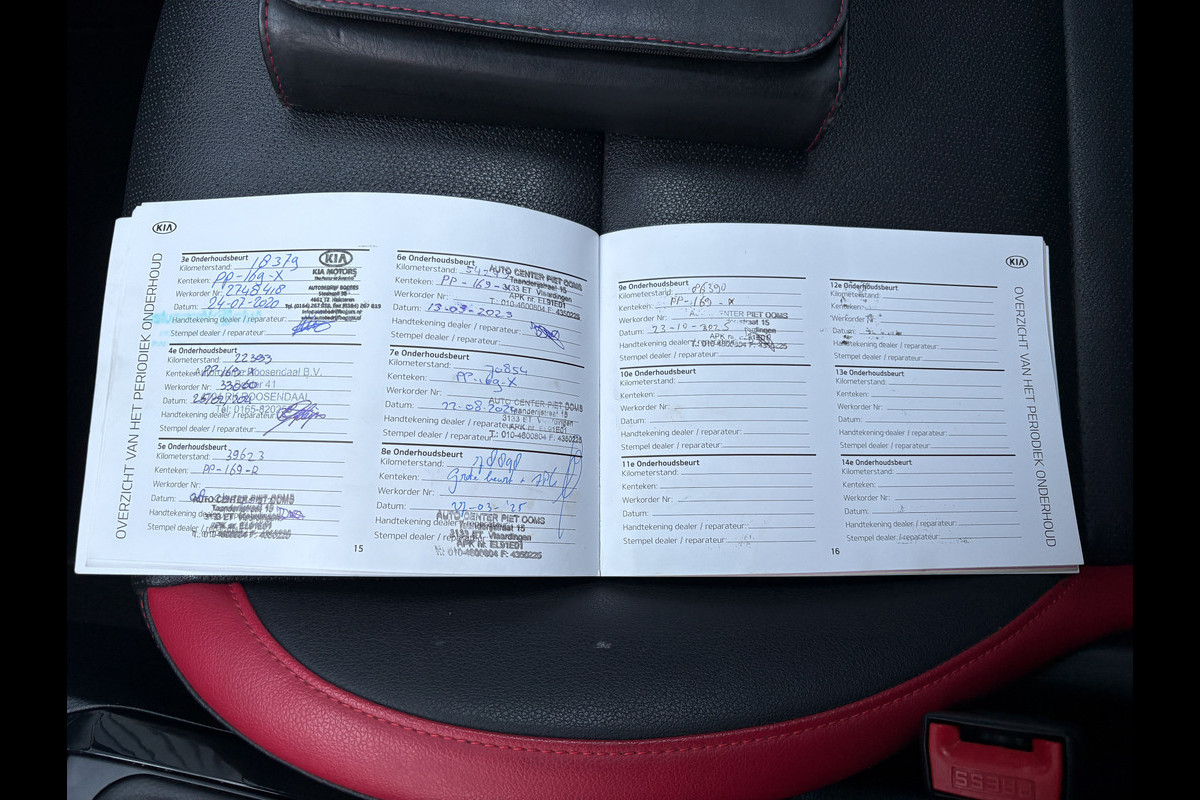 KIA
OVERZICHT VAN HET PERIODIEK ONDERHOUD
3e Onderhoudsbeurt
Kilometerstand: 18379
Kenteken: PP-169-X
Werkorder Nr: 2748418
Datum: 24-07-2020
Handtekening dealer / reparateur:
Stempel dealer / reparateur:
KIA
KIA MOTORS
The Power to Surprise
4e Onderhoudsbeurt
Kilometerstand: 22393
Kenteken: PP-169-X
Werkorder Nr:
Datum:
Handtekening dealer / reparateur:
Stempel dealer / reparateur:
ROOSENDAAL
5e Onderhoudsbeurt
Kilometerstand: 39623
Kenteken: PP-169-R
Werkorder Nr:
Datum:
Handtekening
Stempel dealer
AUTO CENTER PIET OOMS
Taanderijstraat 15
3133 ET Vlaardingen
APK nr. EL91E01
T: 010-4600804 F: 4350225
15
6e Onderhoudsbeurt
Kilometerstand:
Kenteken: PP-169-X
Werkorder Nr:
Datum: 13-09-2023
Handtekening dealer / reparateur:
Stempel dealer / reparateur:
AUTO CENTER PIET OOMS
Taanderijstraat 15
3133 ET Vlaardingen
APK nr. EL91E01
T: 010-4600804 F: 4350225
7e Onderhoudsbeurt
Kilometerstand: 70854
Kenteken: PP-169-X
Werkorder Nr:
Datum: 22-08-
Handtekening dealer / reparateur:
Stempel dealer / reparateur:
AUTO CENTER PIET OOMS
Taanderijstraat 15
T: 010-4600804 F: 4350225
8e Onderhoudsbeurt
Kilometerstand:
Kenteken: Grote beurt + APK
Werkorder Nr:
Datum: 27-03-'25
Handtekening dealer
Stempel dealer
AUTO CENTER PIET OOMS
Taanderijstraat 15
3133 ET Vlaardingen
APK nr. EL91E01
T: 010-4600804 F: 4350225
KIA
OVERZICHT VAN HET PERIODIEK ONDERHOUD
9e Onderhoudsbeurt
Kilometerstand: 86390
Kenteken: PP-169-X
Werkorder Nr:
Datum: 23-10-2025
Handtekening dealer / reparateur:
Stempel dealer / reparateur:
CENTER PIET OOMS
T: 010-4600804 F: 4350225
10e Onderhoudsbeurt
Kilometerstand:
Kenteken:
Werkorder Nr:
Datum:
Handtekening dealer / reparateur:
Stempel dealer / reparateur:
11e Onderhoudsbeurt
Kilometerstand:
Kenteken:
Werkorder Nr:
Datum:
Handtekening dealer / reparateur:
Stempel dealer / reparateur:
12e Onderhoudsbeurt
Kilometerstand:
Kenteken:
Werkorder Nr:
Datum:
Handtekening dealer / reparateur:
Stempel dealer / reparateur:
13e Onderhoudsbeurt
Kilometerstand:
Kenteken:
Werkorder Nr:
Datum:
Handtekening dealer / reparateur:
Stempel dealer / reparateur:
14e Onderhoudsbeurt
Kilometerstand:
Kenteken:
Werkorder Nr:
Datum:
Handtekening dealer / reparateur:
Stempel dealer / reparateur:
16
PRESS